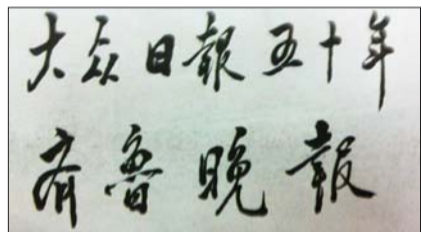 大众日報五十年
齐鲁晚報